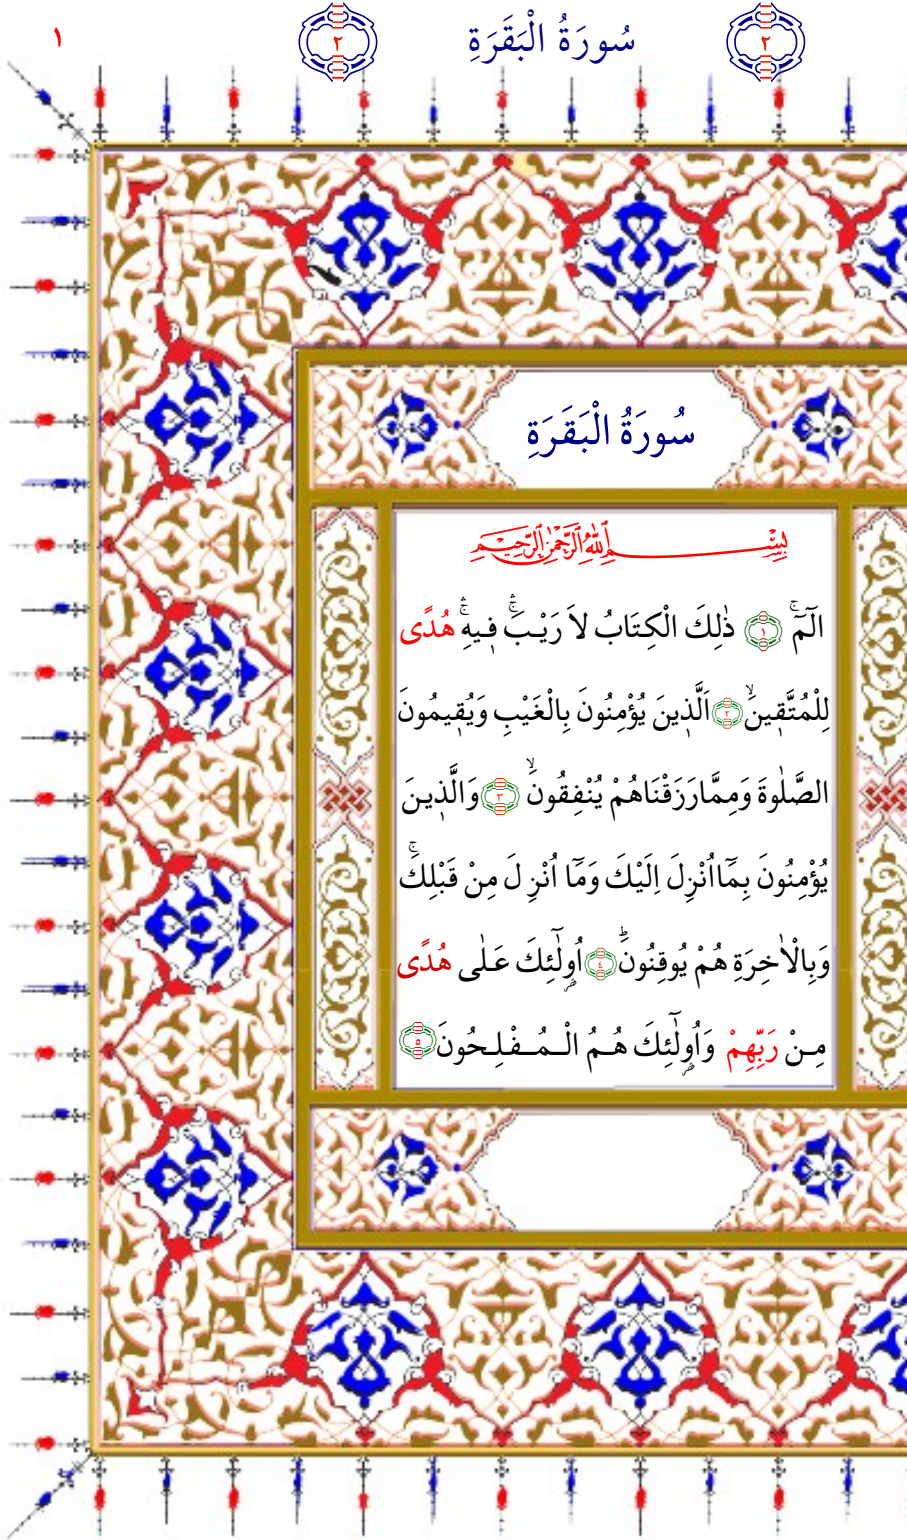 ٢ سُورَةُ الْبَقَرَةِ ٢ ١
سُورَةُ الْبَقَرَةِ
بِسْمِ اللّٰهِ الرَّحْمٰنِ الرَّحِيمِ
الٓمٓۚ ﴿١﴾ ذٰلِكَ الْكِتَابُ لاَ رَيْبَۚۛ فٖيهِۚۛ هُدًى
لِلْمُتَّقٖينَۙ ﴿٢﴾ اَلَّذٖينَ يُؤْمِنُونَ بِالْغَيْبِ وَيُقٖيمُونَ
الصَّلٰوةَ وَمِمَّا رَزَقْنَاهُمْ يُنْفِقُونَۙ ﴿٣﴾ وَالَّذٖينَ
يُؤْمِنُونَ بِمَٓا اُنْزِلَ اِلَيْكَ وَمَٓا اُنْزِلَ مِنْ قَبْلِكَۚ
وَبِالْاٰخِرَةِ هُمْ يُوقِنُونَؕ ﴿٤﴾ اُو۬لٰٓئِكَ عَلٰى هُدًى
مِنْ رَبِّهِمْ وَاُو۬لٰٓئِكَ هُمُ الْمُفْلِحُونَ ﴿٥﴾